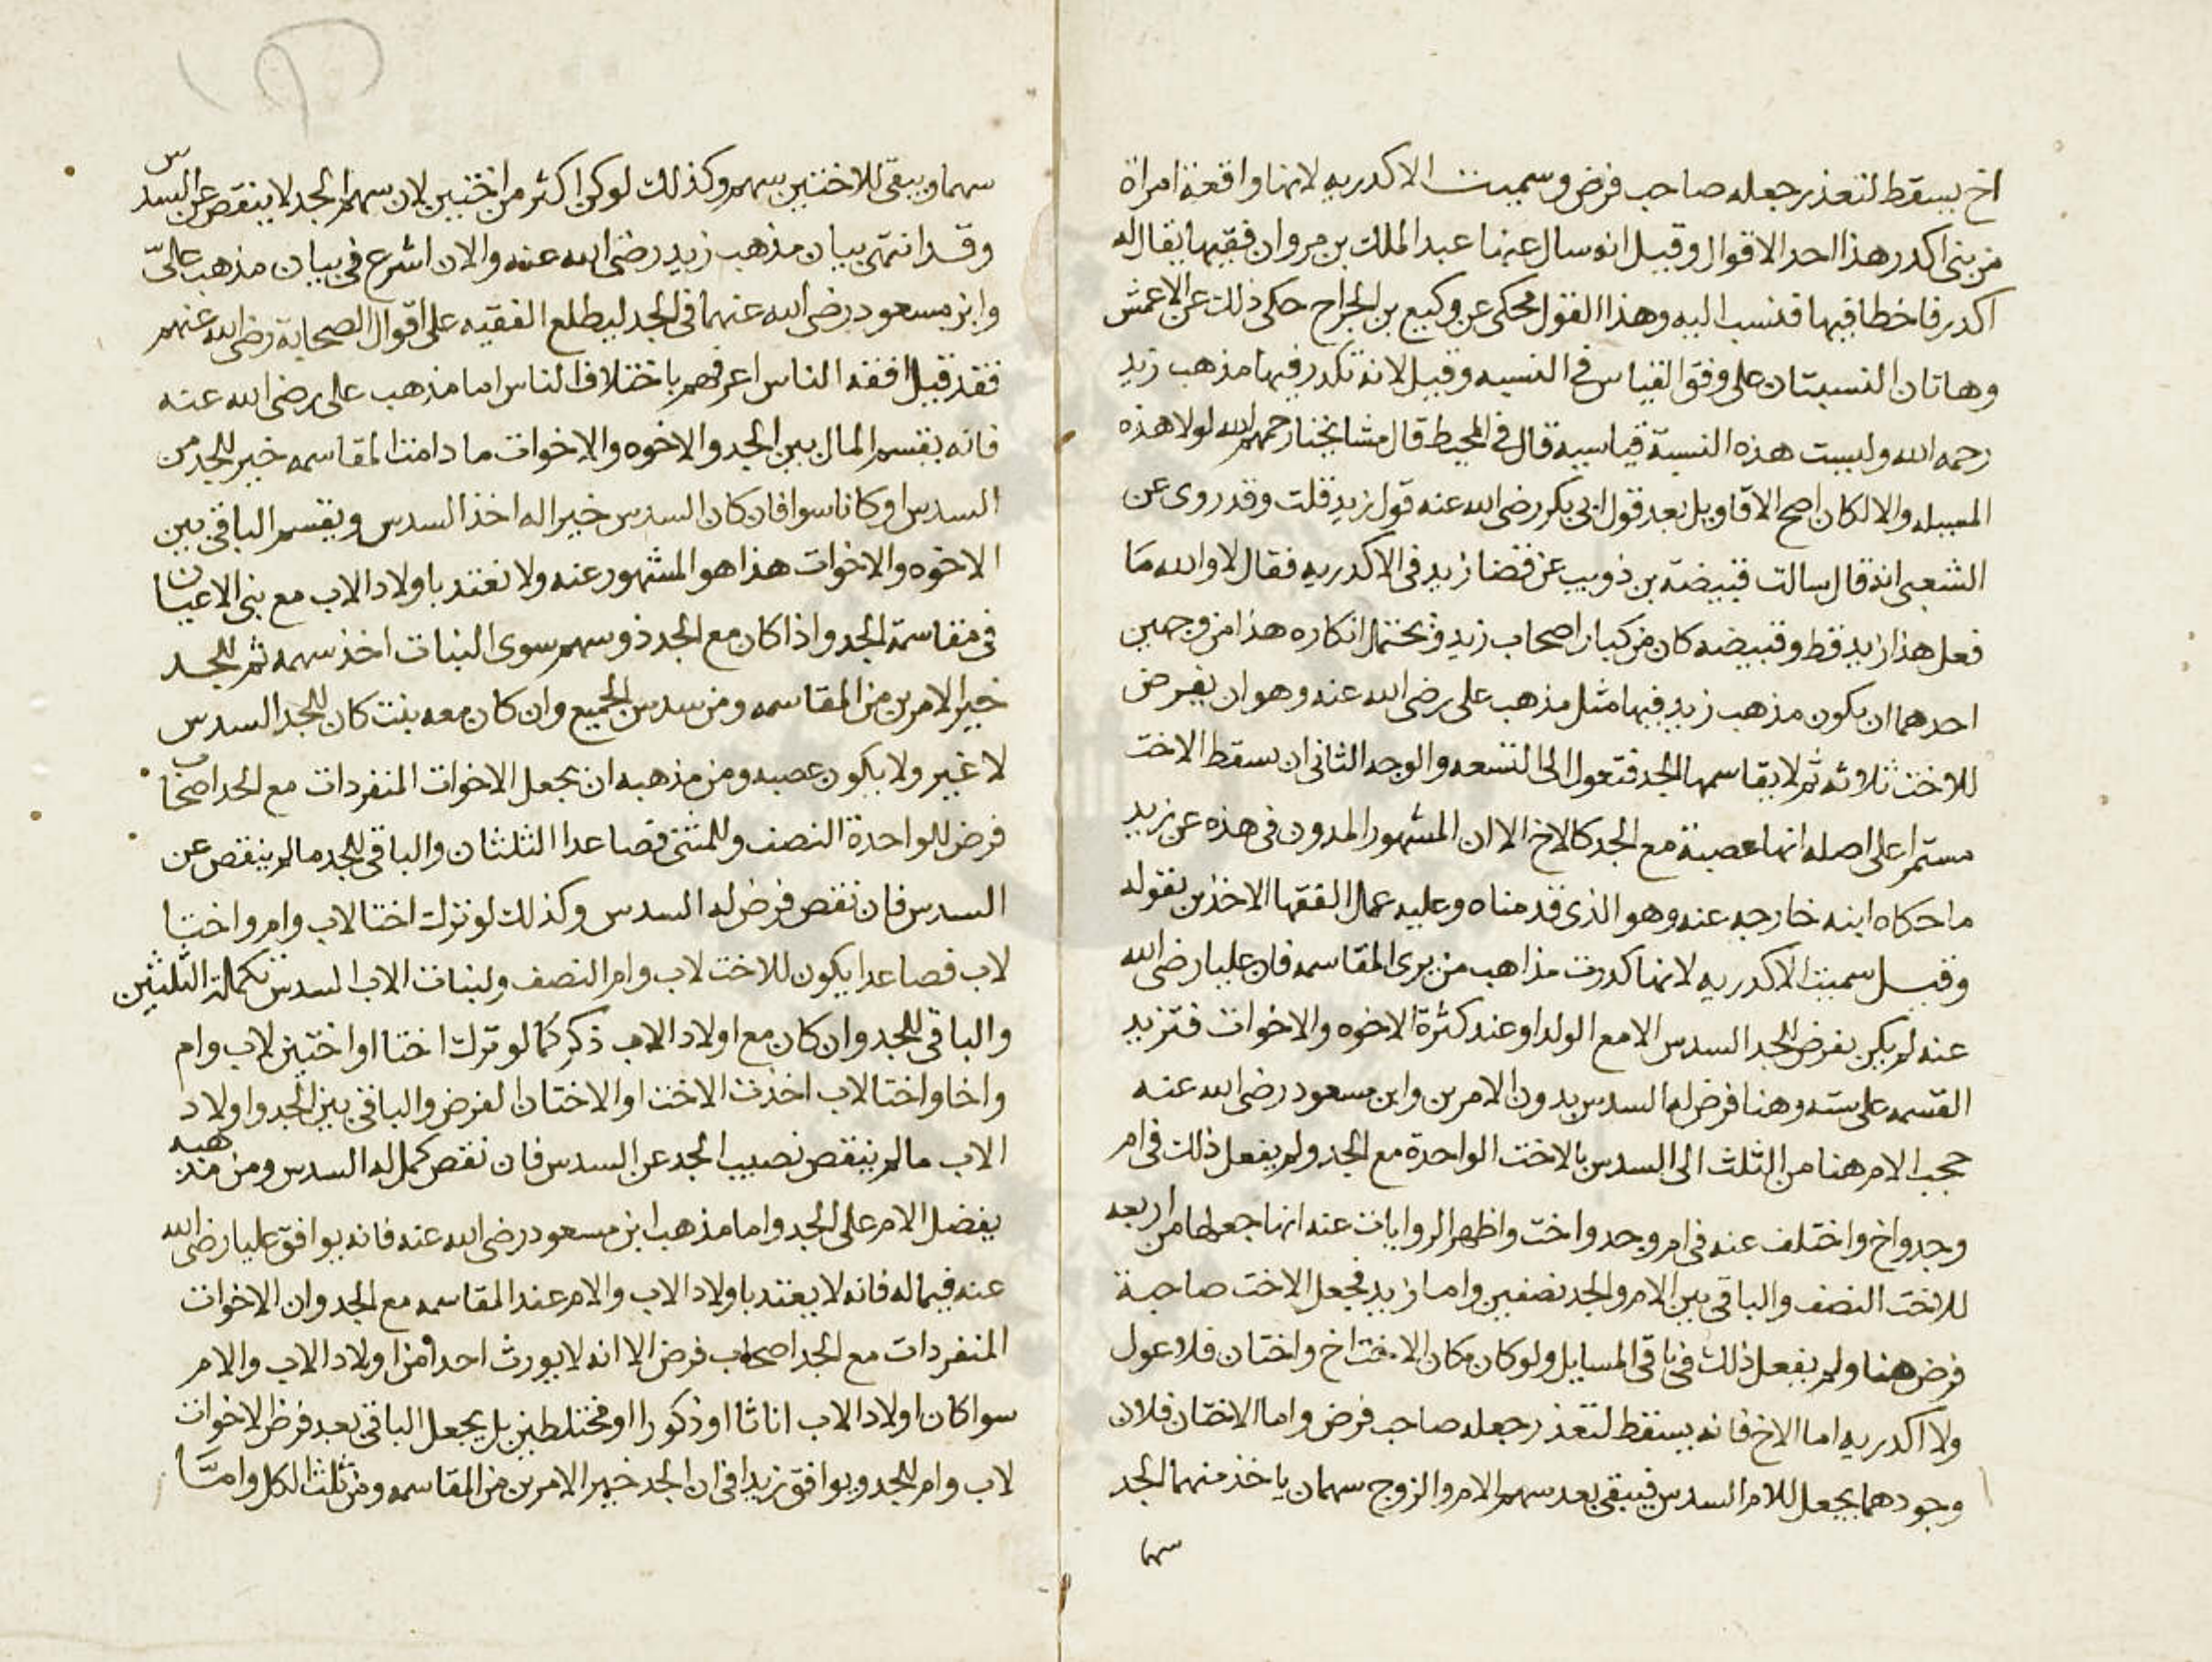 اخ يسقط لتعذر جعله صاحب فرض وسميت الاكدريه لانها واقعة امراة
من بنى اكدر هذا احد الاقوال وقيل انه سال عنها عبد الملك بن مروان فقيها يقال له
اكدر فاخطا فيها فنسب اليه وهذا القول محكى عن وكيع بن الجراح حكى ذلك عن الاعمش
وهاتان النسبتان على وفق القياس فى النسبه وقيل لانه تكدر فيها مذهب زيد
رحمه الله وليست هذه النسبة قياسيه قال فى المحيط قال مشايخنا رحمهم الله لولا هذه
المسيله والا لكان اصح الاقاويل بعد قول ابى بكر رضى الله عنه قول زيد قلت وقد روى عن
الشعبى انه قال سالت قبيضة بن ذويب عن قضا زيد فى الاكدريه فقال لا والله ما
فعل هذا زيد قط وقبيضه كان من كبار اصحاب زيد ويحتمل انكاره هذا من وجهين
احدهما ان يكون مذهب زيد فيها مثل مذهب على رضى الله عنه وهو ان يفرض
للاخت ثلاثه ثم لا يقاسمها الجد فتعول الى التسعه والوجه الثانى ان يسقط الاخت
مستمرا على اصله انها عصبة مع الجد كالاخ الا ان المشهور المدون فى هذه عن زيد
ما حكاه ابنه خارجه عنه وهو الذى قدمناه وعليه عمل الفقها الاخذين بقوله
وقيل سميت الاكدريه لانها كدرت مذاهب من يرى المقاسمه فان عليا رضى الله
عنه لم يكن يفرض للجد السدس الا مع الولد او عند كثرة الاخوه والاخوات فتزيد
القسمه على سته وهنا فرض له السدس بدون الامرين وابن مسعود رضى الله عنه
حجب الام هنا من الثلث الى السدس بالاخت الواحدة مع الجد ولم يفعل ذلك فى ام
وجد واخ واختلف عنه فى ام وجد واخت واظهر الروايات عنه انها جعلها من اربعه
للاخت النصف والباقى بين الام والجد نصفين واما زيد فجعل الاخت صاحبة
فرض هنا ولم يفعل ذلك فى باقى المسايل ولو كان مكان الاخت اخ واختان فلا عول
ولا اكدريه اما الاخ فانه يسقط لتعذر جعله صاحب فرض واما الاختان فلان
وجودهما يجعل للام السدس فيبقى بعد سهم الام والزوج سهمان ياخذ منهما الجد
سهما
سهما ويبقى للاختين سهم وكذلك لو كن اكثر من اختين لان سهم الجد لا ينقص عن السدس
وقد انتهى بيان مذهب زيد رضى الله عنه والان اشرع فى بيان مذهب على
وابن مسعود رضى الله عنهما فى الجد ليطلع الفقيه على اقوال الصحابة رضى الله عنهم
فقد قيل افقه الناس اعرفهم باختلاف الناس اما مذهب على رضى الله عنه
فانه يقسم المال بين الجد والاخوه والاخوات ما دامت المقاسمه خير للجد من
السدس او كانا سوا فان كان السدس خيرا له اخذ السدس ويقسم الباقى بين
الاخوه والاخوات هذا هو المشهور عنه ولا نعتد باولاد الاب مع بنى الاعيان
فى مقاسمة الجد واذا كان مع الجد ذو سهم سوى البنات اخذ سهمه ثم للجد
خير الامرين من المقاسمه ومن سدس الجميع وان كان معه بنت كان للجد السدس
لا غير ولا يكون عصبه ومن مذهبه ان يجعل الاخوات المنفردات مع الجد اصحاب
فرض للواحدة النصف وللمثنى فصاعدا الثلثان والباقى للجد ما لم ينقص عن
السدس فان نقص فرض له السدس وكذلك لو ترك اختا لاب وام واختا
لاب فصاعدا يكون للاخت لاب وام النصف ولبنات الاب السدس تكملة الثلثين
والباقى للجد وان كان مع اولاد الاب ذكر كما لو ترك اختا او اختين لاب وام
واخا واختا لاب اخذت الاخت او الاختان الفرض والباقى بين الجد واولاد
الاب ما لم ينقص نصيب الجد عن السدس فان نقص كمل له السدس ومن مذهبه
يفضل الام على الجد واما مذهب ابن مسعود رضى الله عنه فانه يوافق عليا رضى الله
عنه فيما له فانه لا يعتد باولاد الاب والام عند المقاسمه مع الجد وان الاخوات
المنفردات مع الجد اصحاب فرض الا انه لا يورث احدا من اولاد الاب والام
سوا كان اولاد الاب اناثا او ذكورا او مختلطين بل يجعل الباقى بعد فرض الاخوات
لاب وام للجد ويوافق زيدا فى ان الجد خير الامرين من المقاسمه ومن ثلث الكل وامــا